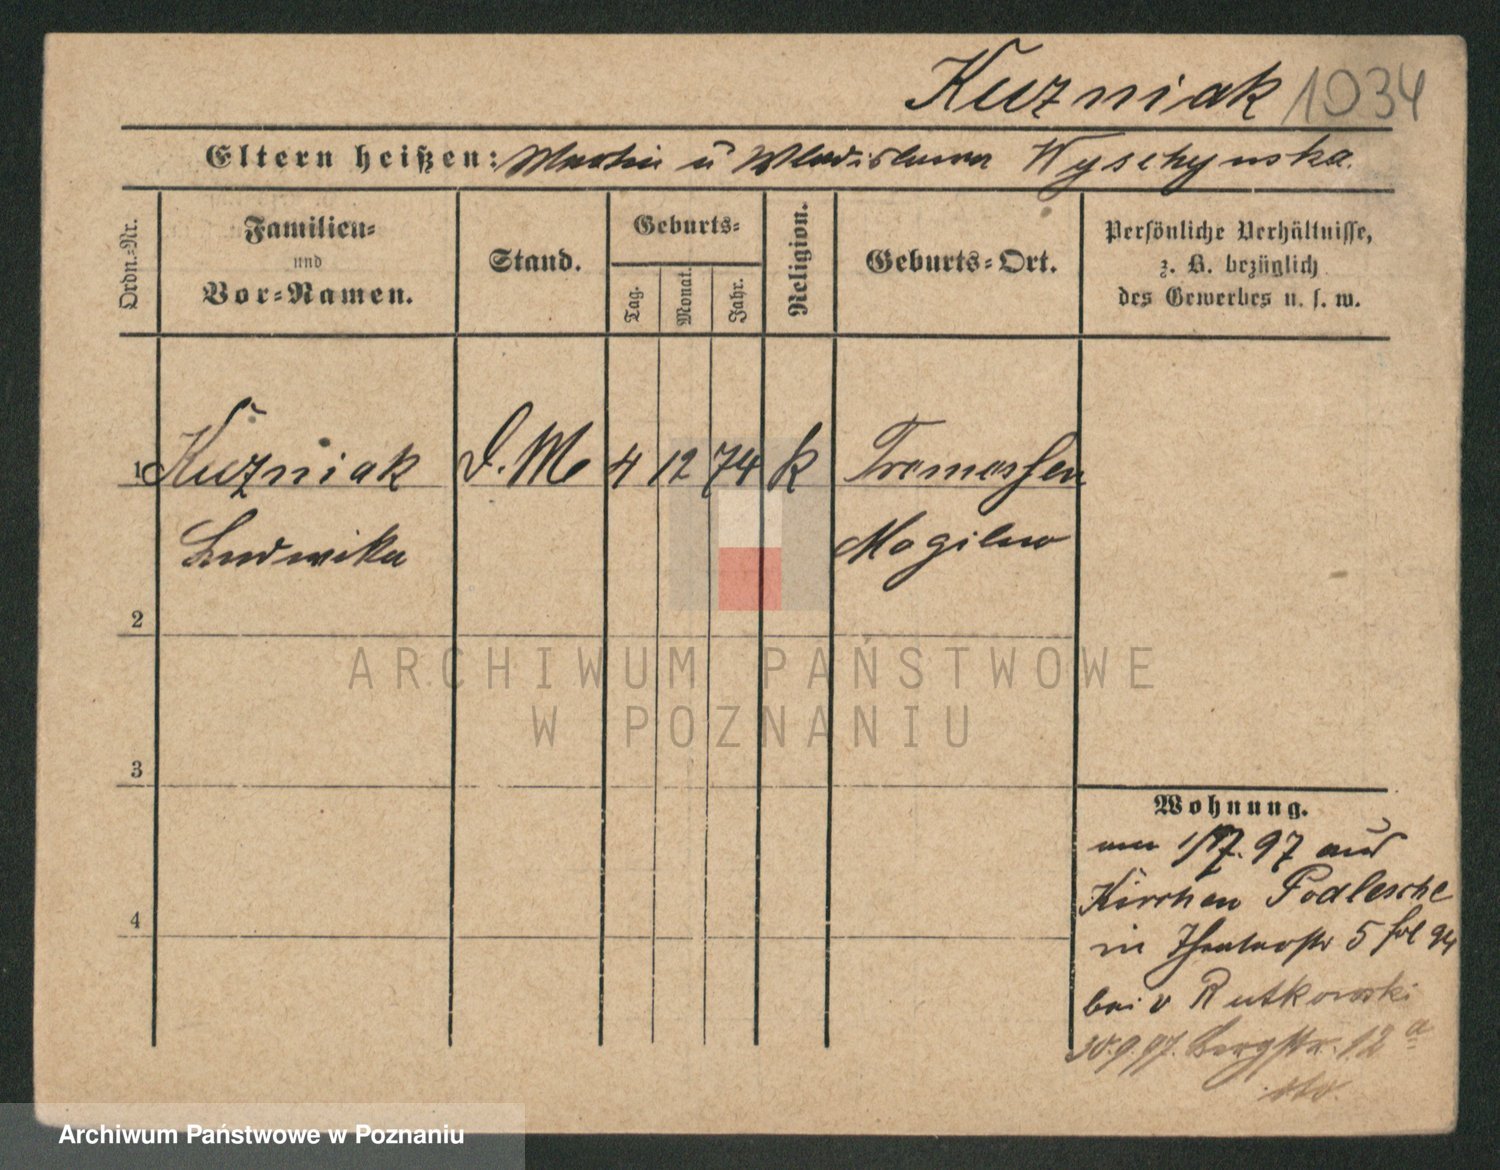 Kuzniak 1034
Eltern heißen: Martin u Wladislawa Wyschynska.
Ordn.-Nr.
Familien-
und
Vor-Namen.
Stand.
Geburts-
Tag.
Monat.
Jahr.
Religion.
Geburts-Ort.
Persönliche Verhältnisse,
z. B. bezüglich
des Gewerbes u. s. w.
1 Kuzniak D. M 4 12 74 k Tremessen
Ludwika Mogilno
2
ARCHIWUM PAŃSTWOWE
W POZNANIU
3
Wohnung.
am 97 aus
4
Podlesche
in Theaterstr 5
bei v Rutkowski
30.9.97. Bergstr. 12 a
Archiwum Państwowe w Poznaniu